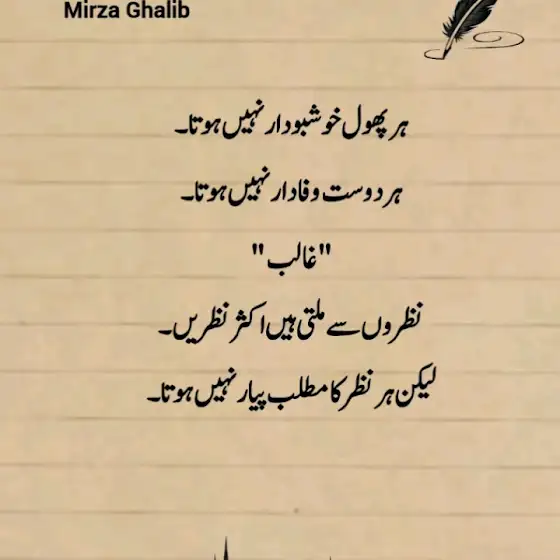 Mirza Ghalib
ہر پھول خوشبودار نہیں ہوتا۔
ہر دوست وفادار نہیں ہوتا۔
"غالب"
نظروں سے ملتی ہیں اکثر نظریں۔
لیکن ہر نظر کا مطلب پیار نہیں ہوتا۔